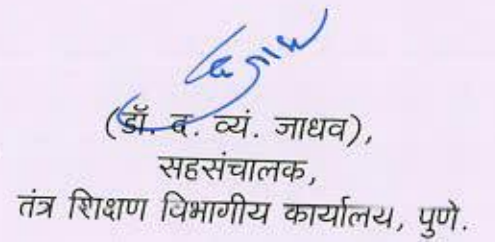 (डॉ. द. व्यं. जाधव),
सहसंचालक,
तंत्र शिक्षण विभागीय कार्यालय, पुणे.